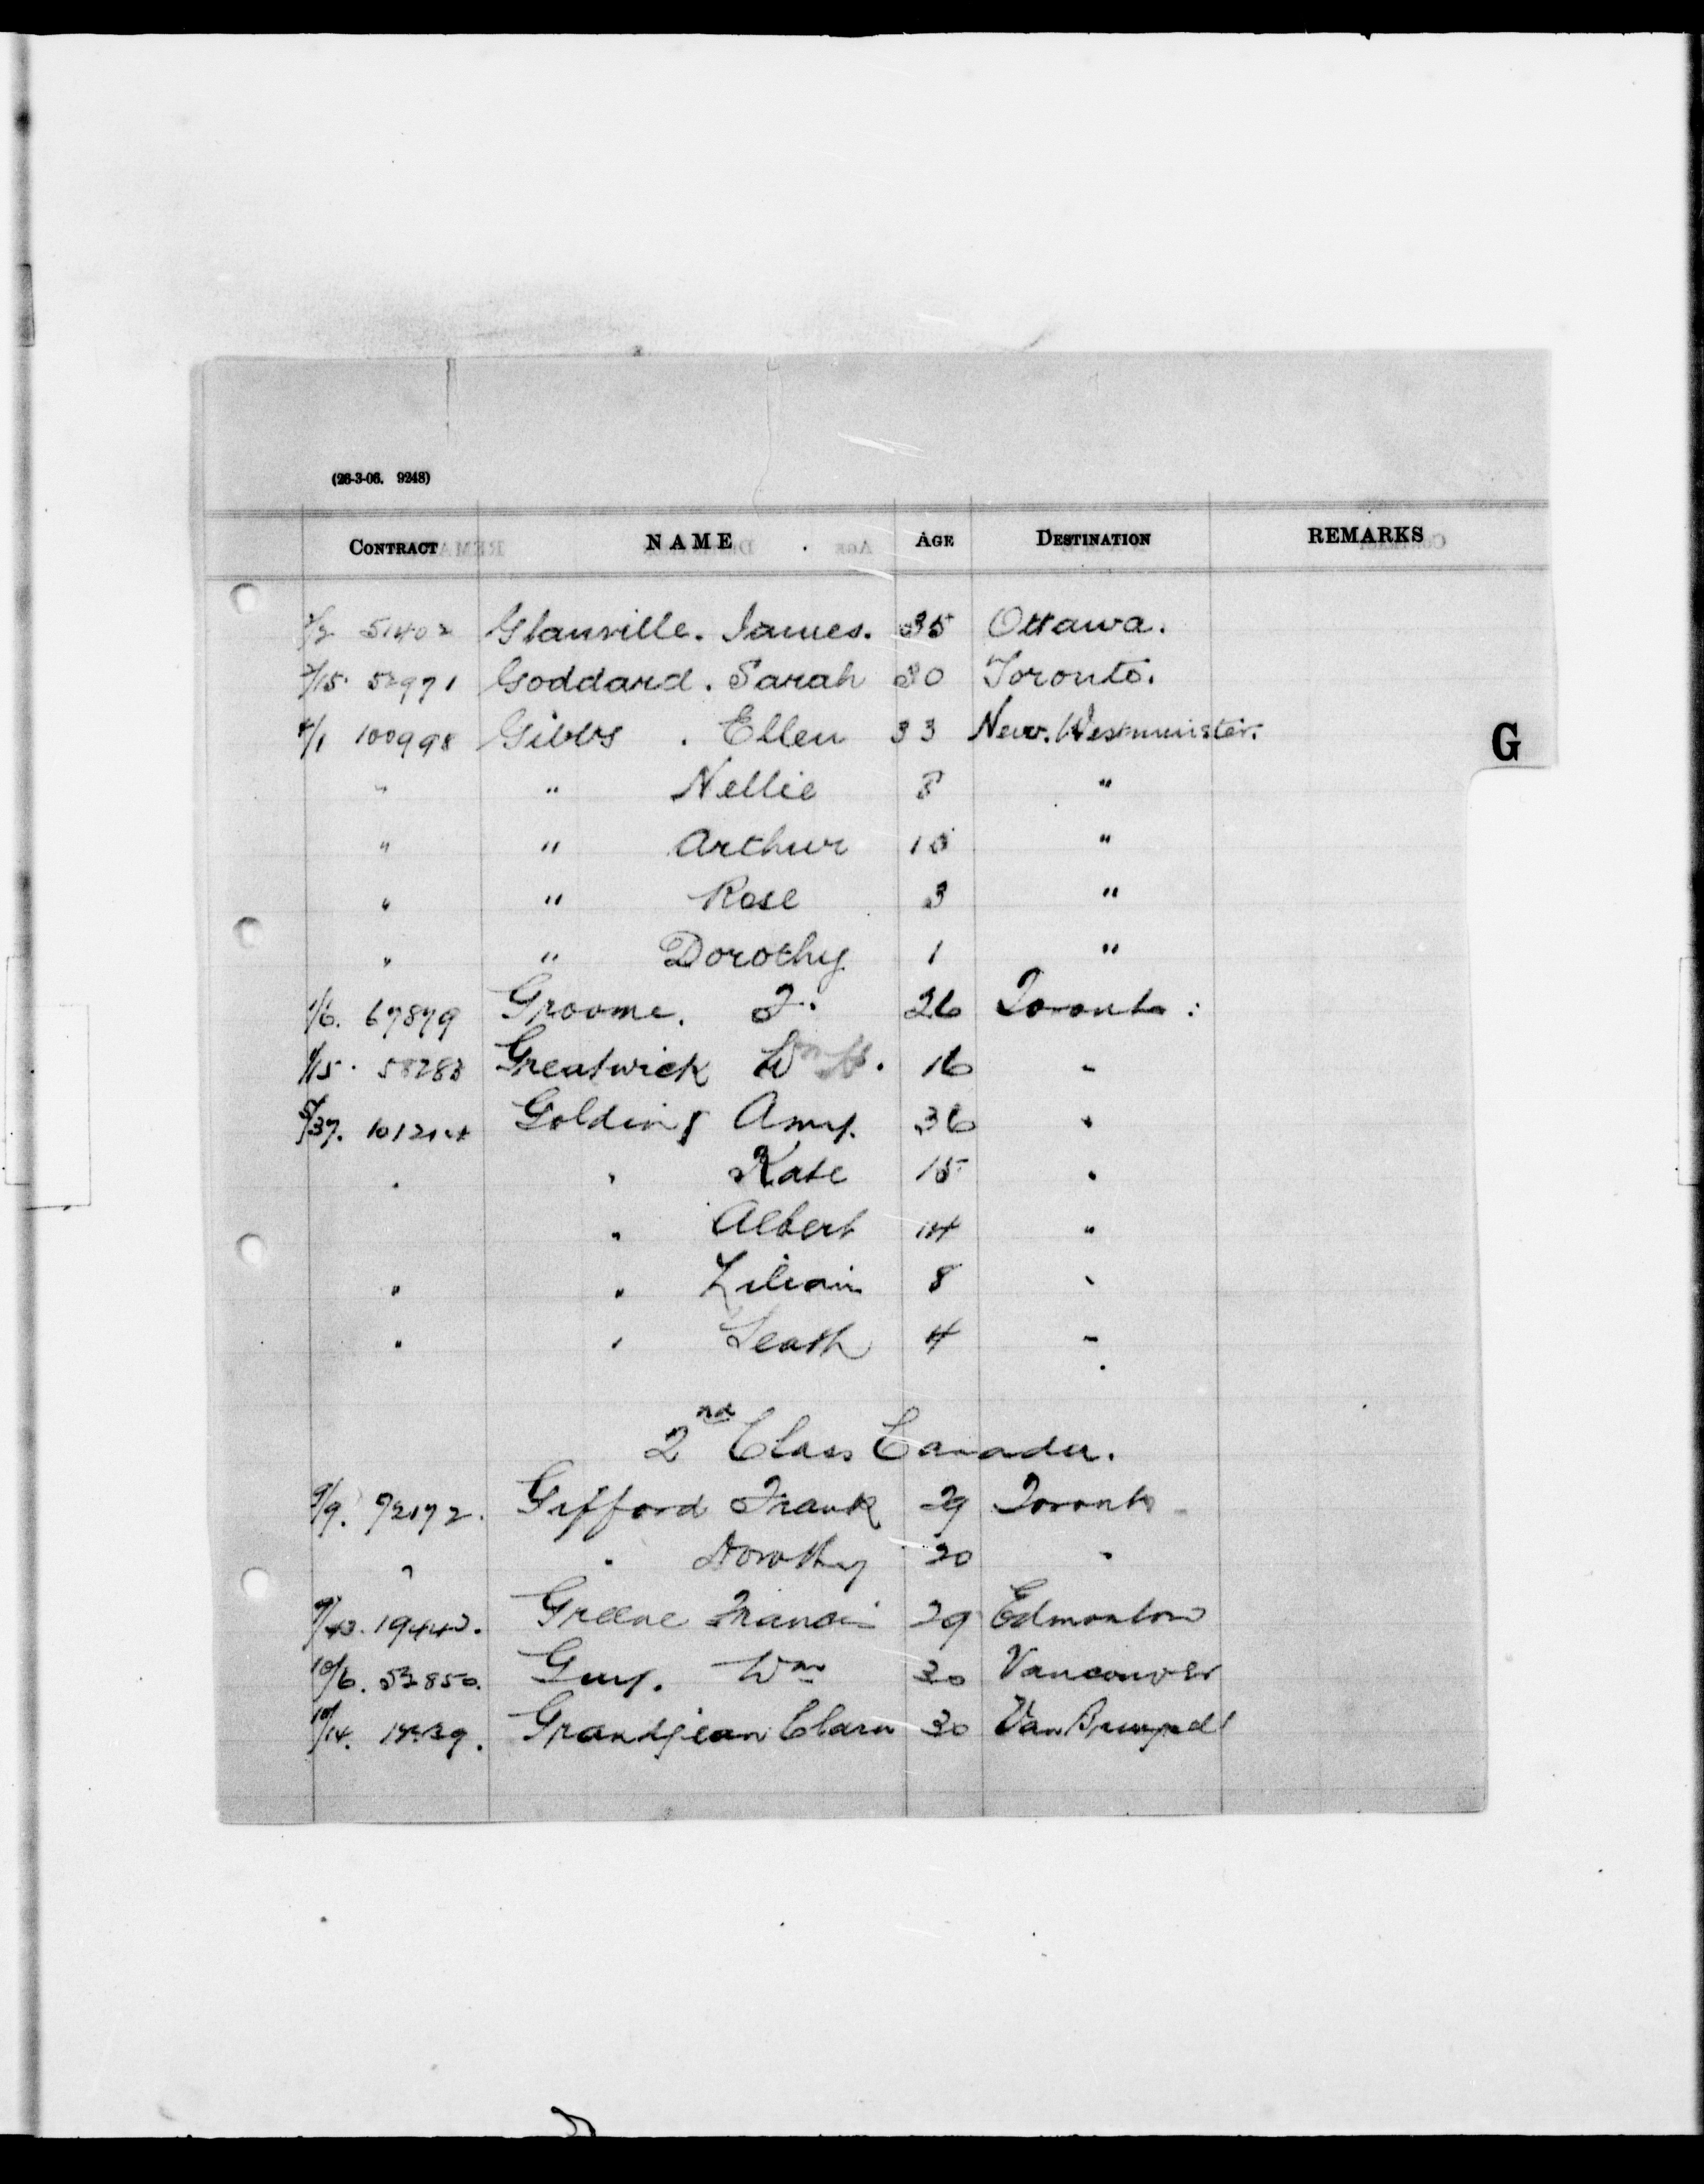 (26-3-06. 9248)
CONTRACT NAME AGE DESTINATION REMARKS
51402 Glanville. James. 35 Ottawa.
2/15. 52971 Goddard. Sarah 30 Toronto.
4/1 100998 Gibbs. Ellen 33 New. Westminister.
G
" " Nellie 8 "
" " Arthur 10 "
" " Rose 3 "
" " Dorothy 1 "
1/6. 67879 Groome. F. 26 Toronto:
1/15. 58283 Greatwick Wm H. 16 "
5/37. Golding Amy. 36 "
" " Kate 15 "
" Albert 14 "
" " Lilian 8 "
" " 4 "
2nd Class Canada.
9/9. 72172. Gifford Frank 29 Toronto
" " Dorothy 20 "
Greene Francis 29 Edmonton
10/6. 53850. Guy. Wm 30 Vancouver
10/14. Grandjean Clara 30